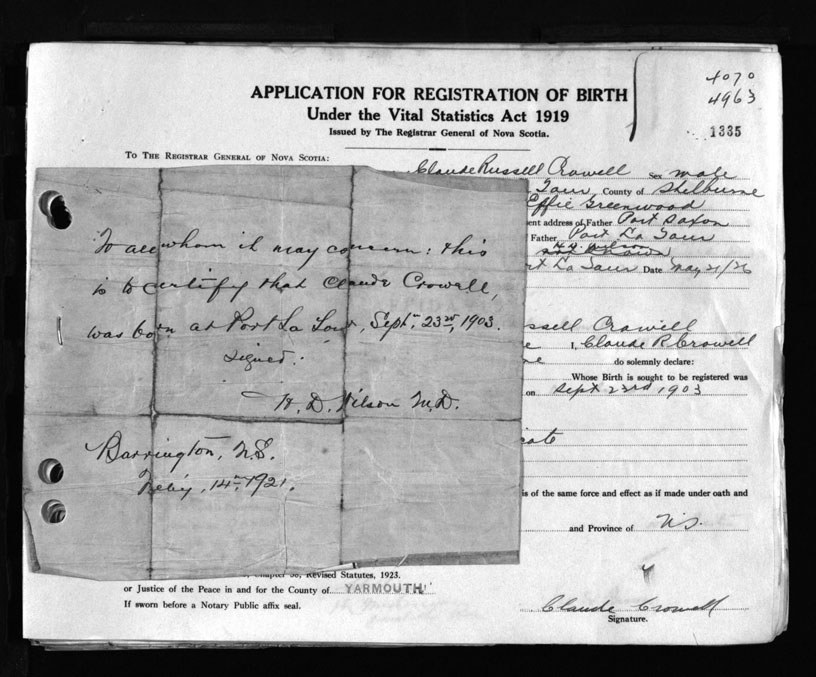 4070
4963
1335
APPLICATION FOR REGISTRATION OF BIRTH
Under the Vital Statistics Act 1919
Issued by The Registrar General of Nova Scotia.
TO THE REGISTRAR GENERAL OF NOVA SCOTIA:
Claude Russell Crowell Sex male
Tour, County of Shelburne
Effie Greenwood
ent address of Father Port Saxon
Father Port La Tour
H. D. Wilson
rt La Tour Date May 21/26
To all whom it may concern: this
is to certify that Claude Crowell,
was born at Port La Tour, Sept. 23rd, 1903.
Signed:
H. D. Wilson M.D.
Barrington, N.S.
Feb'y, 14th, 1921.
ssell Crowell
I, Claude R. Crowell
do solemnly declare:
Whose Birth is sought to be registered was
on Sept 23rd 1903
cate
is of the same force and effect as if made under oath and
and Province of N.S.
Chapter 38, Revised Statutes, 1923.
or Justice of the Peace in and for the County of YARMOUTH
If sworn before a Notary Public affix seal.
Claude Crowell
Signature.